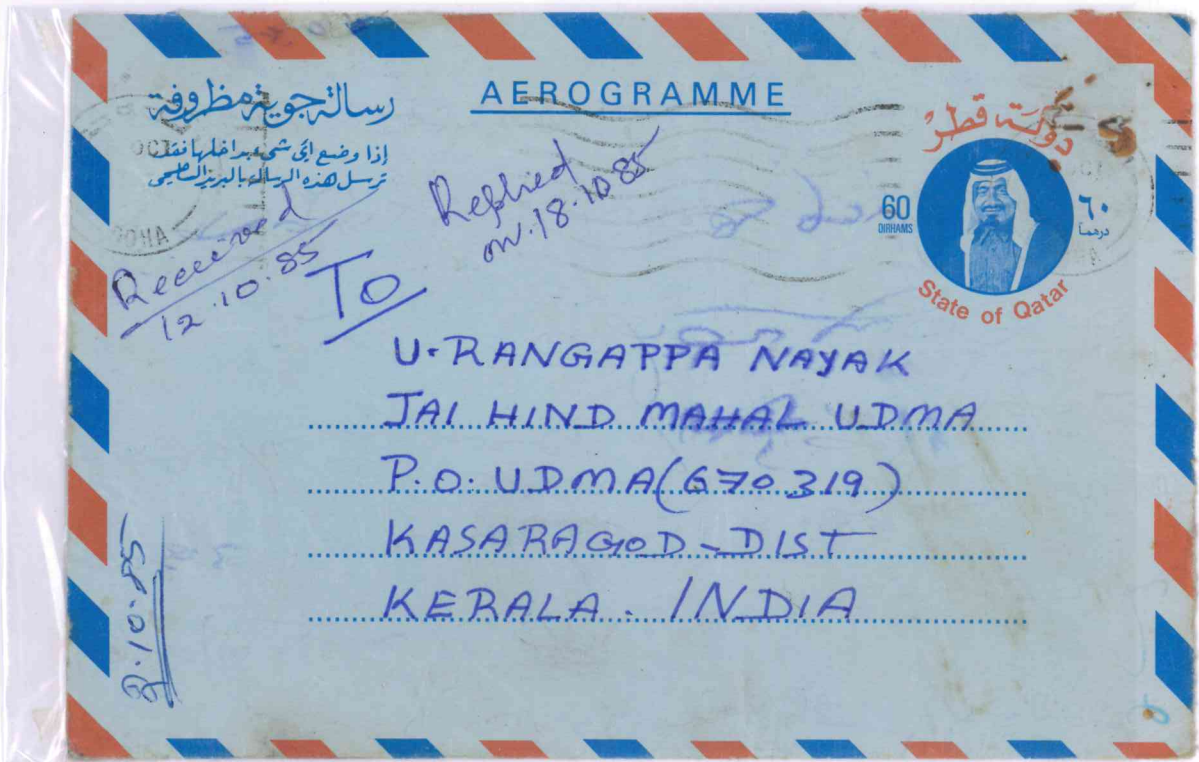 AEROGRAMME
رسالة جوية مظروفة
إذا وضع اي شيء بداخلها فقد
ترسل هذه الرسالة بالبريد السطحي
دولة قطر
60
DIRHAMS
٦٠
درهماً
State of Qatar
OCT
DOHA
Received
12.10.85
Replied
on 18.10.85
To
U. RANGAPPA NAYAK
JAI HIND MAHAL UDMA
P.O. UDMA (670319)
KASARAGOD-DIST
KERALA. INDIA
8.10.85